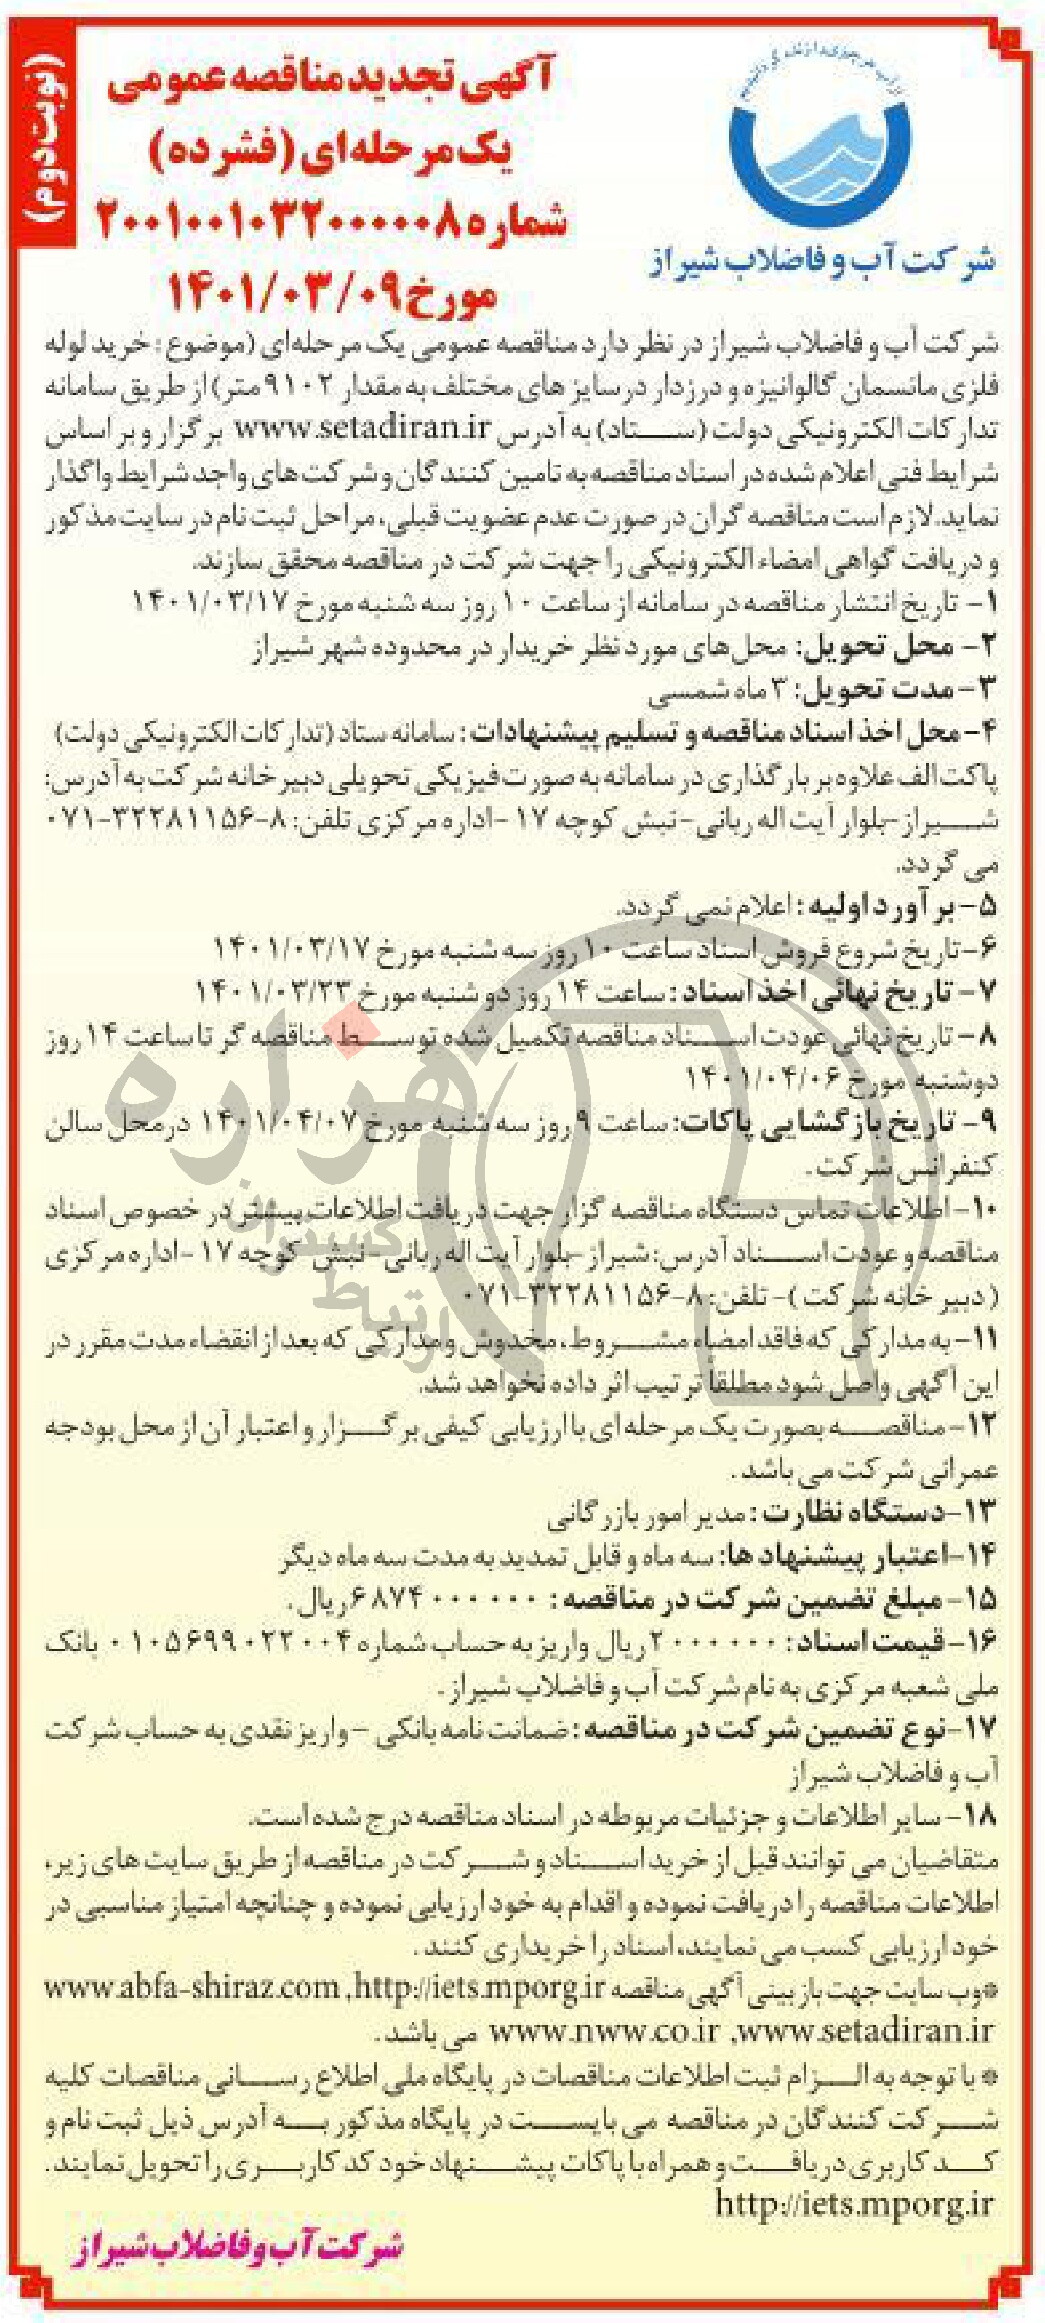 (نوبت دوم)
آگهی تجدید مناقصه عمومی
یک مرحله‌ای (فشرده)
شماره ۲۰۰۱۰۰۱۰۳۲۰۰۰۰۰۸
مورخ ۱۴۰۱/۰۳/۰۹
شرکت آب و فاضلاب شیراز
شرکت آب و فاضلاب شیراز در نظر دارد مناقصه عمومی یک مرحله‌ای (موضوع: خرید لوله
فلزی مانسمان گالوانیزه و درزدار در سایز های مختلف به مقدار ۹۱۰۲ متر) از طریق سامانه
تدارکات الکترونیکی دولت (ستاد) به آدرس www.setadiran.ir برگزار و بر اساس
شرایط فنی اعلام شده در اسناد مناقصه به تامین کنندگان و شرکت های واجد شرایط واگذار
نماید. لازم است مناقصه گران در صورت عدم عضویت قبلی، مراحل ثبت نام در سایت مذکور
و دریافت گواهی امضاء الکترونیکی را جهت شرکت در مناقصه محقق سازند.
۱- تاریخ انتشار مناقصه در سامانه از ساعت ۱۰ روز سه شنبه مورخ ۱۴۰۱/۰۳/۱۷
۲- محل تحویل: محل‌های مورد نظر خریدار در محدوده شهر شیراز
۳- مدت تحویل: ۳ ماه شمسی
۴- محل اخذ اسناد مناقصه و تسلیم پیشنهادات: سامانه ستاد (تدارکات الکترونیکی دولت)
پاکت الف علاوه بر بارگذاری در سامانه به صورت فیزیکی تحویلی دبیرخانه شرکت به آدرس:
شیراز-بلوار آیت اله ربانی-نبش کوچه ۱۷ -اداره مرکزی تلفن: ۸-۳۲۲۸۱۱۵۶-۰۷۱
می گردد.
۵- برآورد اولیه: اعلام نمی گردد.
۶-تاریخ شروع فروش اسناد ساعت ۱۰ روز سه شنبه مورخ ۱۴۰۱/۰۳/۱۷
۷- تاریخ نهائی اخذ اسناد: ساعت ۱۴ روز دو شنبه مورخ ۱۴۰۱/۰۳/۲۳
۸- تاریخ نهائی عودت اسناد مناقصه تکمیل شده توسط مناقصه گر تا ساعت ۱۴ روز
دوشنبه مورخ ۱۴۰۱/۰۴/۰۶
۹- تاریخ بازگشایی پاکات: ساعت ۹ روز سه شنبه مورخ ۱۴۰۱/۰۴/۰۷ درمحل سالن
کنفرانس شرکت.
۱۰- اطلاعات تماس دستگاه مناقصه گزار جهت دریافت اطلاعات بیشتر در خصوص اسناد
مناقصه و عودت اسناد آدرس: شیراز -بلوار آیت اله ربانی- نبش کوچه ۱۷ -اداره مرکزی
(دبیر خانه شرکت)- تلفن: ۸-۳۲۲۸۱۱۵۶-۰۷۱
۱۱- به مدارکی که فاقد امضاء، مشروط، مخدوش و مدارکی که بعد از انقضاء مدت مقرر در
این آگهی واصل شود مطلقاً ترتیب اثر داده نخواهد شد.
۱۲- مناقصه بصورت یک مرحله ای با ارزیابی کیفی برگزار و اعتبار آن از محل بودجه
عمرانی شرکت می باشد.
۱۳-دستگاه نظارت: مدیر امور بازرگانی
۱۴-اعتبار پیشنهاد ها: سه ماه و قابل تمدید به مدت سه ماه دیگر
۱۵- مبلغ تضمین شرکت در مناقصه: ۶۸۷۴۰۰۰۰۰۰ ریال.
۱۶- قیمت اسناد: ۲۰۰۰۰۰۰ ریال واریز به حساب شماره ۰۱۰۵۶۹۹۰۲۲۰۰۴ بانک
ملی شعبه مرکزی به نام شرکت آب و فاضلاب شیراز.
۱۷-نوع تضمین شرکت در مناقصه: ضمانت نامه بانکی - واریز نقدی به حساب شرکت
آب و فاضلاب شیراز
۱۸- سایر اطلاعات و جزئیات مربوطه در اسناد مناقصه درج شده است.
متقاضیان می توانند قبل از خرید اسناد و شرکت در مناقصه از طریق سایت های زیر،
اطلاعات مناقصه را دریافت نموده و اقدام به خود ارزیابی نموده و چنانچه امتیاز مناسبی در
خود ارزیابی کسب می نمایند، اسناد را خریداری کنند.
*وب سایت جهت بازبینی آگهی مناقصه www.abfa-shiraz.com ,http://iets.mporg.ir
www.nww.co.ir ,www.setadiran.ir می باشد.
* با توجه به الزام ثبت اطلاعات مناقصات در پایگاه ملی اطلاع رسانی مناقصات کلیه
شرکت کنندگان در مناقصه می بایست در پایگاه مذکور به آدرس ذیل ثبت نام و
کد کاربری دریافت و همراه با پاکات پیشنهاد خود کد کاربری را تحویل نمایند.
http://iets.mporg.ir
شرکت آب و فاضلاب شیراز
هزاره
گستران
ارتباط